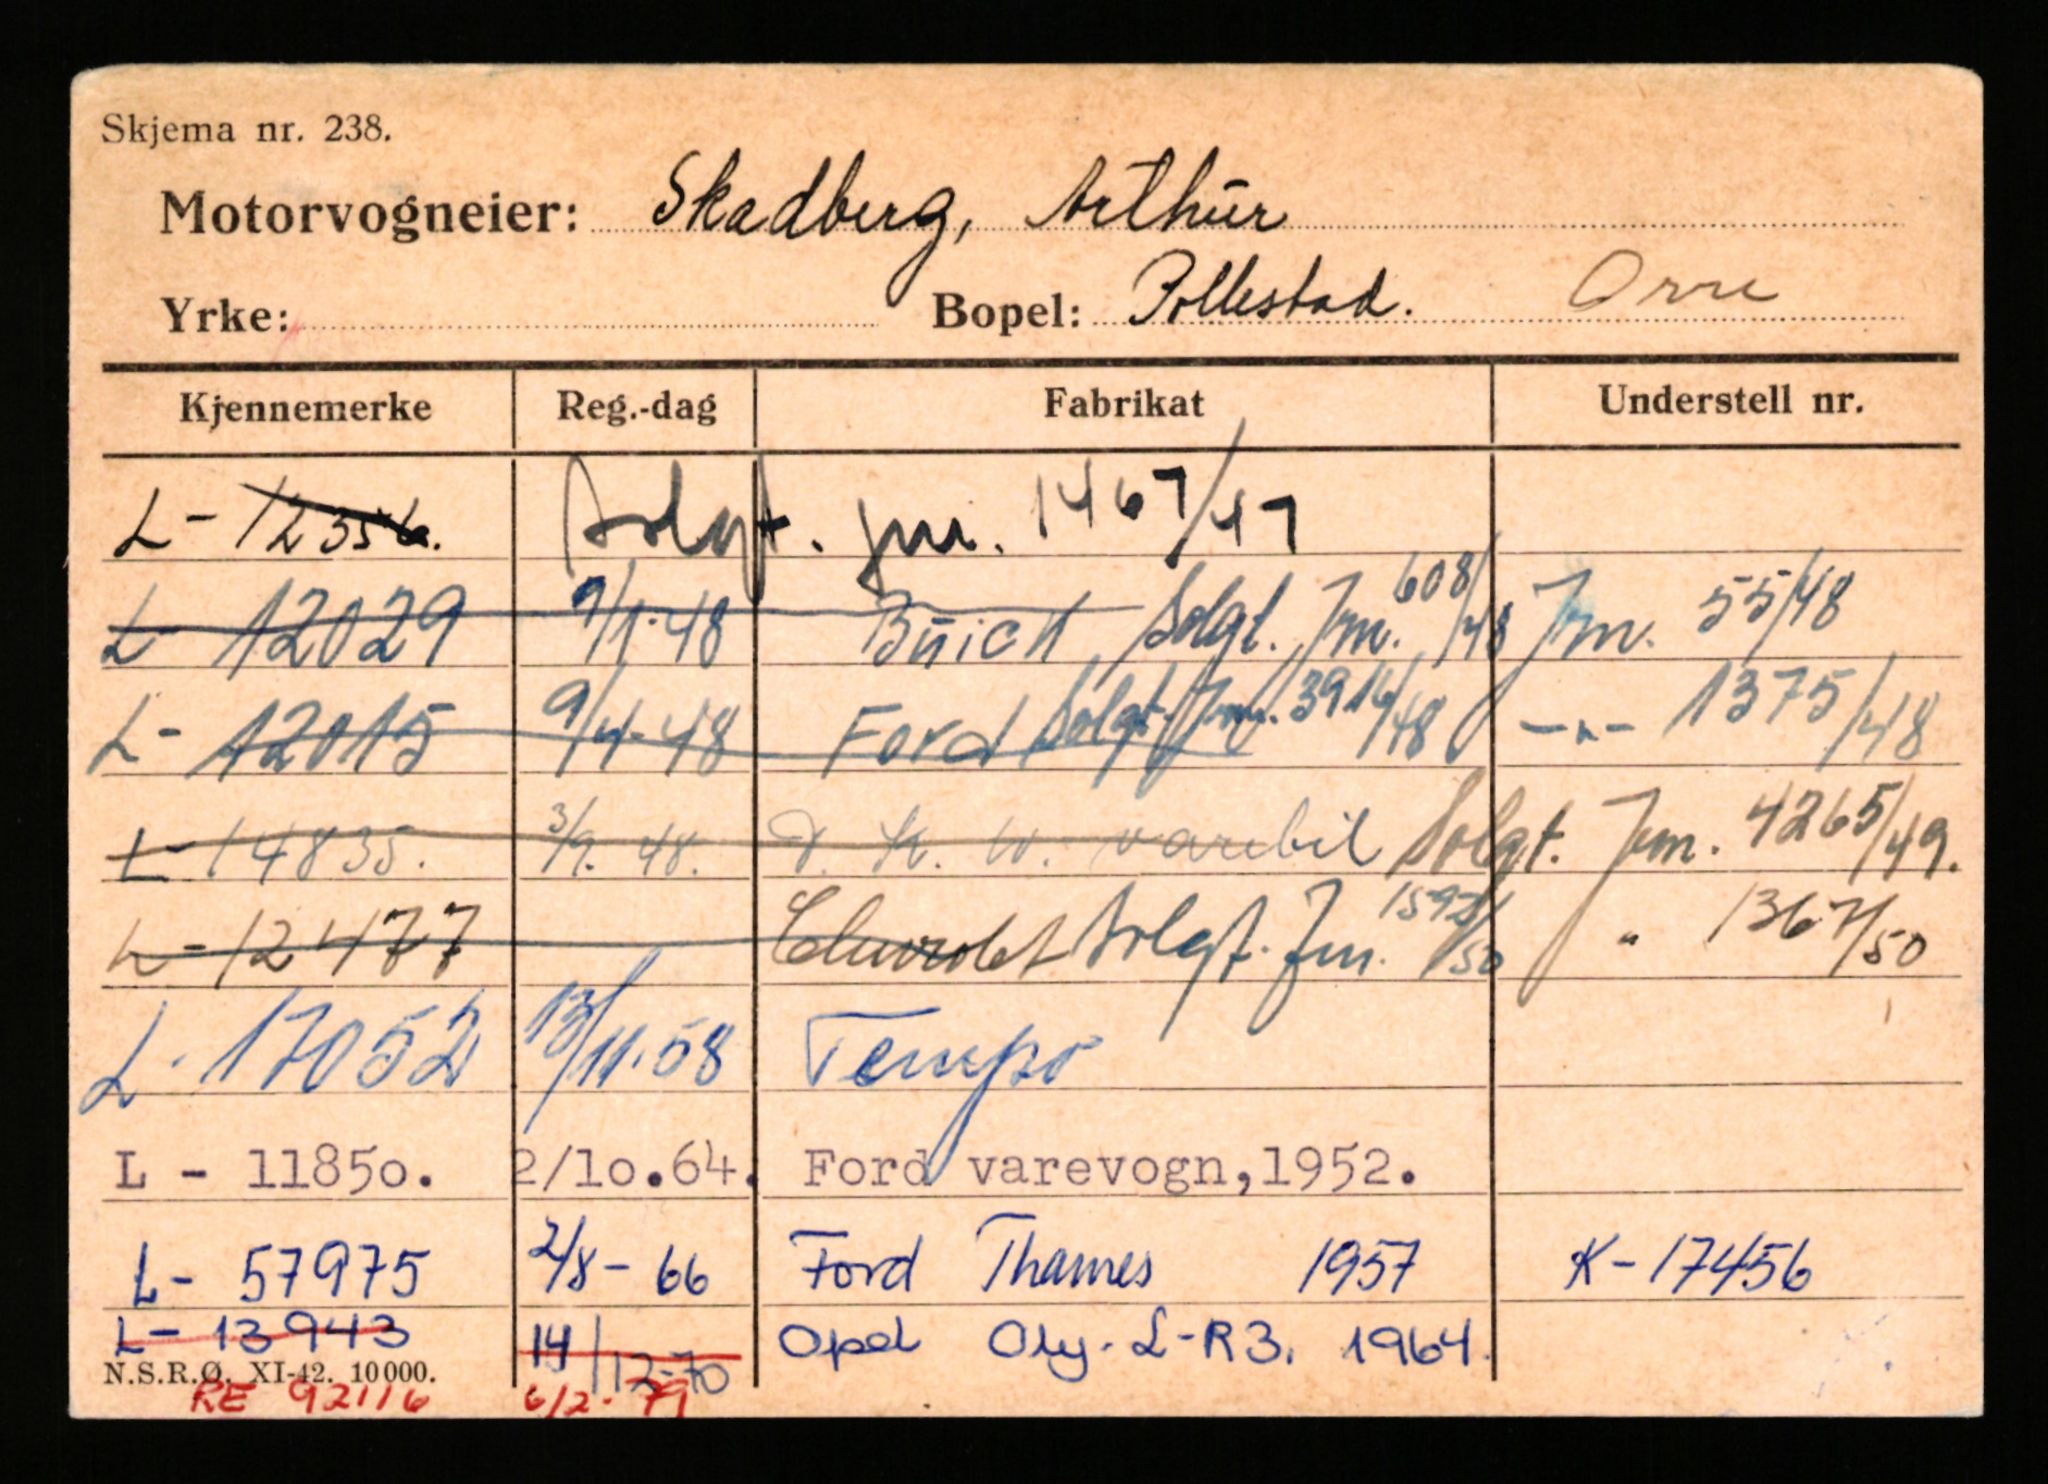 Skjema nr. 238.
Motorvogneier: Skadberg, Arthur
Yrke: Bopel: Pollestad. Orre
Kjennemerke Reg.-dag Fabrikat Understell nr.
L- 12356. Solgt. jnr. 1467/47
L- 12029 9/1-48 Buick Solgt. Jrn. 608/48 Jrn. 55/48
L- 12015 9/4-48 Ford Solgt. Jrn. 3916/48 -"- 1375/48
L- 14835. 3/9. 48. D. K. W. varebil Solgt. Jrn. 4265/49.
L- 12477 Chevrolet Solgt. Jrn. 1592/50 " 1367/50
L. 17052 13/11.58 Tempo
L - 11850. 2/10.64. Ford varevogn,1952.
L- 57975 2/8-66 Ford Thames 1957 K-17456
L- 13943 14/12-70 Opel Oly. L-R3. 1964.
N.S.R.Ø. XI-42. 10000.
RE 92116 6/2-79